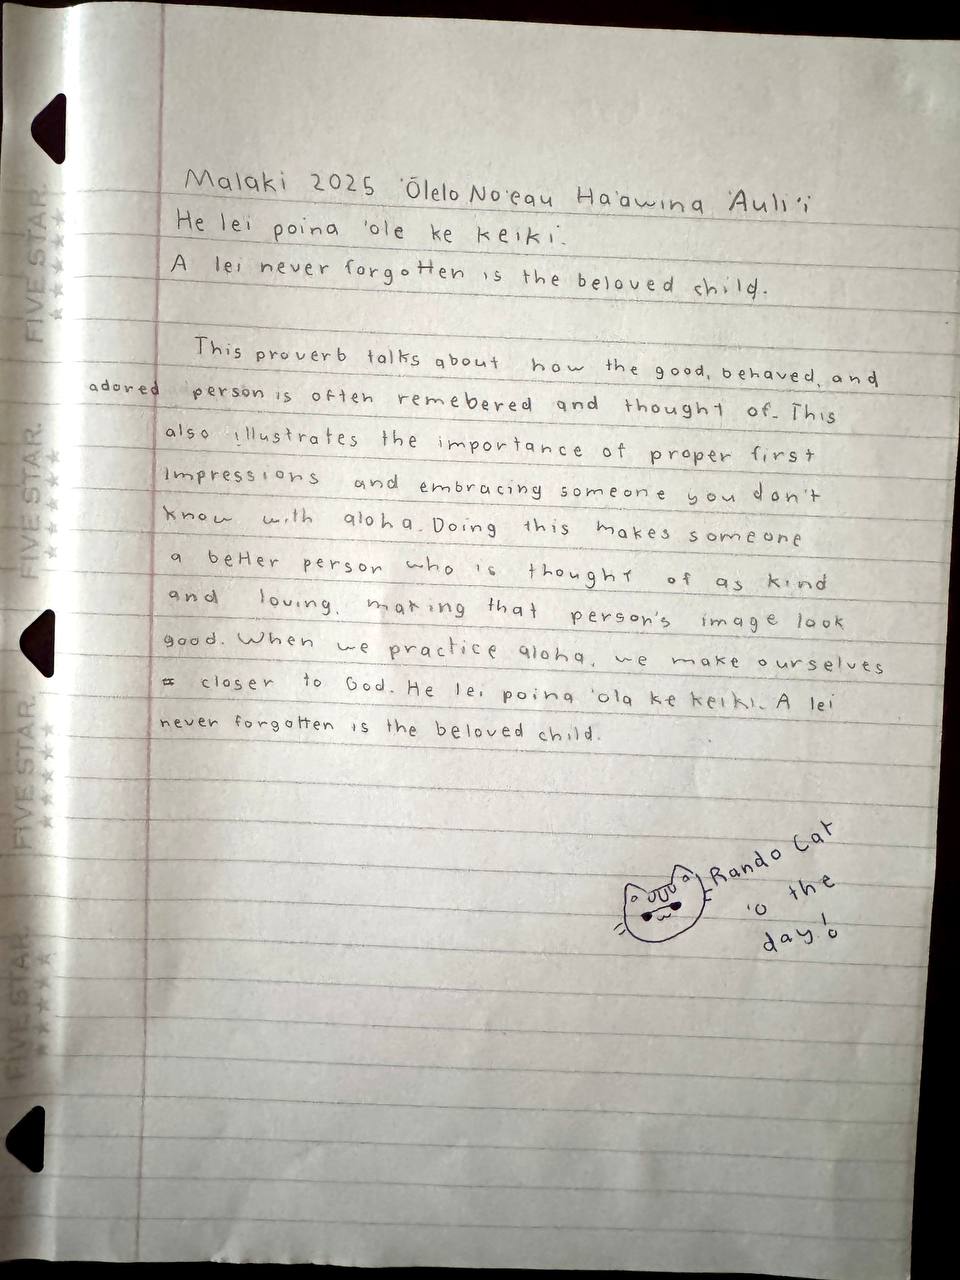 Malaki 2025 ʻŌlelo Noʻeau Haʻawina ʻAuliʻi
He lei poina ʻole ke keiki.
A lei never forgotten is the beloved child.
This proverb talks about how the good, behaved, and
adored person is often remebered and thought of. This
also illustrates the importance of proper first
impressions and embracing someone you don't
know with aloha. Doing this makes someone
a better person who is thought of as kind
and loving, making that person's image look
good. When we practice aloha, we make ourselves
closer to God. He lei poina ʻola ke keiki. A lei
never forgotten is the beloved child.
Rando Cat
ʻo the
day!
FIVE STAR.
FIVE STAR.
FIVE STAR.
FIVE STAR.